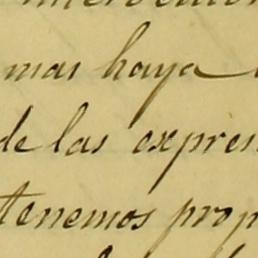 mas haya
de las expres
tenemos prop